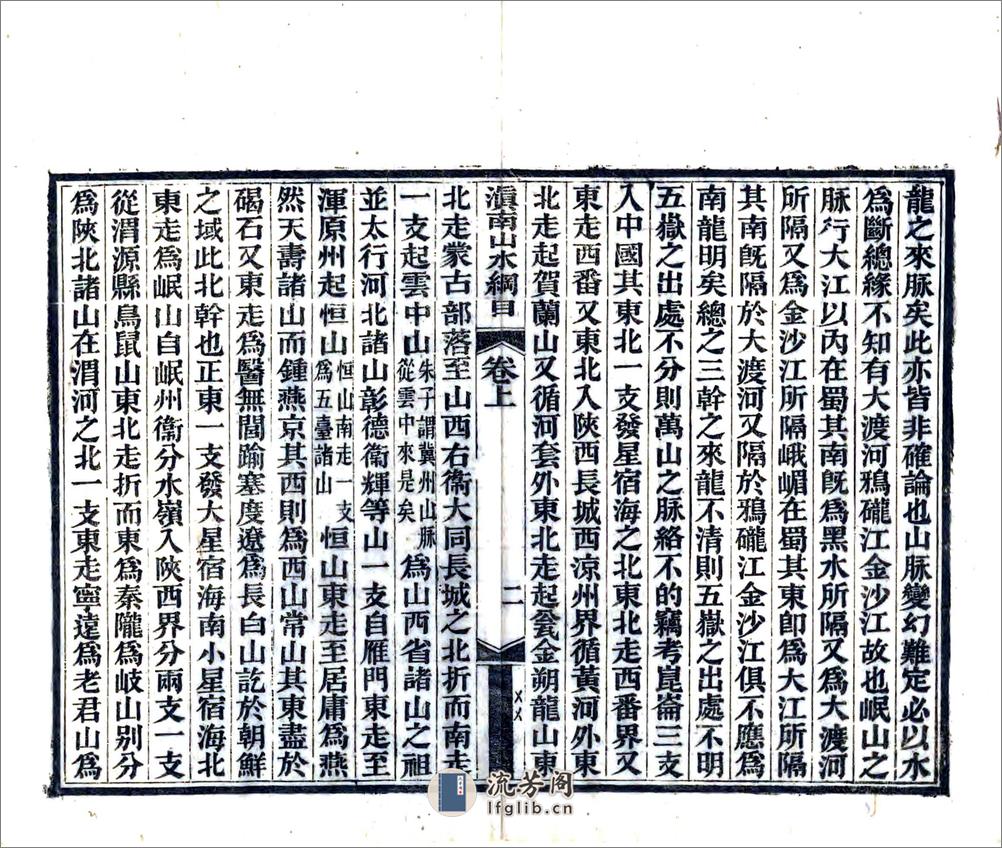 龍之來脉矣此亦皆非確論也山脉變幻難定必以水
爲斷總緣不知有大渡河鴉礲江金沙江故也岷山之
脉行大江以內在蜀其南旣爲黑水所隔又爲大渡河
所隔又爲金沙江所隔峨嵋在蜀其東卽爲大江所隔
其南旣隔於大渡河又隔於鴉礲江金沙江俱不應爲
南龍明矣總之三幹之來龍不清則五嶽之出處不明
五嶽之出處不分則萬山之脉絡不的竊考崑崙三支
入中國其東北一支發星宿海之北東北走西番界又
東走西番又東北入陝西長城西涼州界循黃河外東
北走起賀蘭山又循河套外東北走起瓮金朔龍山東
滇南山水綱目
卷上
二
北走蒙古部落至山西右衞大同長城之北折而南走
一支起雲中山朱子謂冀州山脉從雲中來是矣爲山西省諸山之祖
並太行河北諸山彰德衞輝等山一支自雁門東走至
渾原州起恒山恒山南走一支爲五臺諸山恒山東走至居庸爲燕
然天壽諸山而鍾燕京其西則爲西山常山其東盡於
碣石又東走爲醫無閭踰塞度遼爲長白山訖於朝鮮
之域此北幹也正東一支發大星宿海南小星宿海北
東走爲岷山自岷州衞分水嶺入陝西界分兩支一支
從渭源縣鳥鼠山東北走折而東爲秦隴爲岐山别分
爲陝北諸山在渭河之北一支東走寧遠爲老君山爲
流芳阁
lfglib.cn